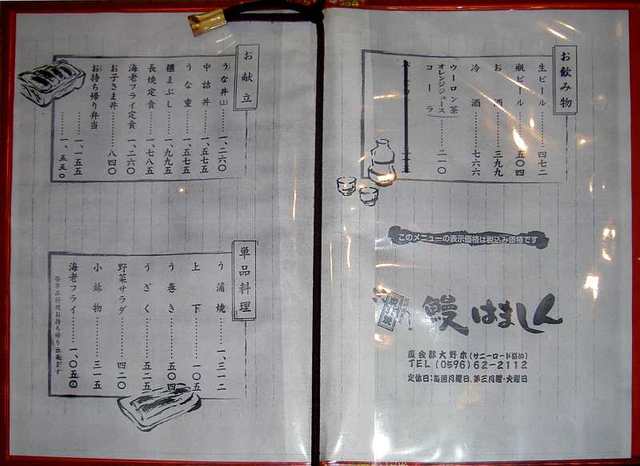 お飲み物
生ビール……四七二
瓶ビール……五〇四
お酒……三九九
冷酒……七六六
ウーロン茶
オレンジジュース……二一〇
コーラ
このメニューの表示価格は税込み価格です
鰻はましん
度会郡大野木(サニーロード沿い)
TEL (0596) 62-2112
定休日:毎週月曜日、第三月曜・火曜日
お献立
うな丼……一、二六〇
中詰丼……一、五七五
うな重……一、五七五
櫃まぶし……一、九九五
長焼定食……一、七八五
海老フライ定食……一、二六〇
お子さま丼……八四〇
お持ち帰り弁当
……一、一五五
……一、五五〇
単品料理
う蒲焼……一、三一二
上下……一〇五
う巻き……五〇四
うざく……五二五
野菜サラダ……四二〇
小鉢物……三一五
海老フライ……一、〇五〇